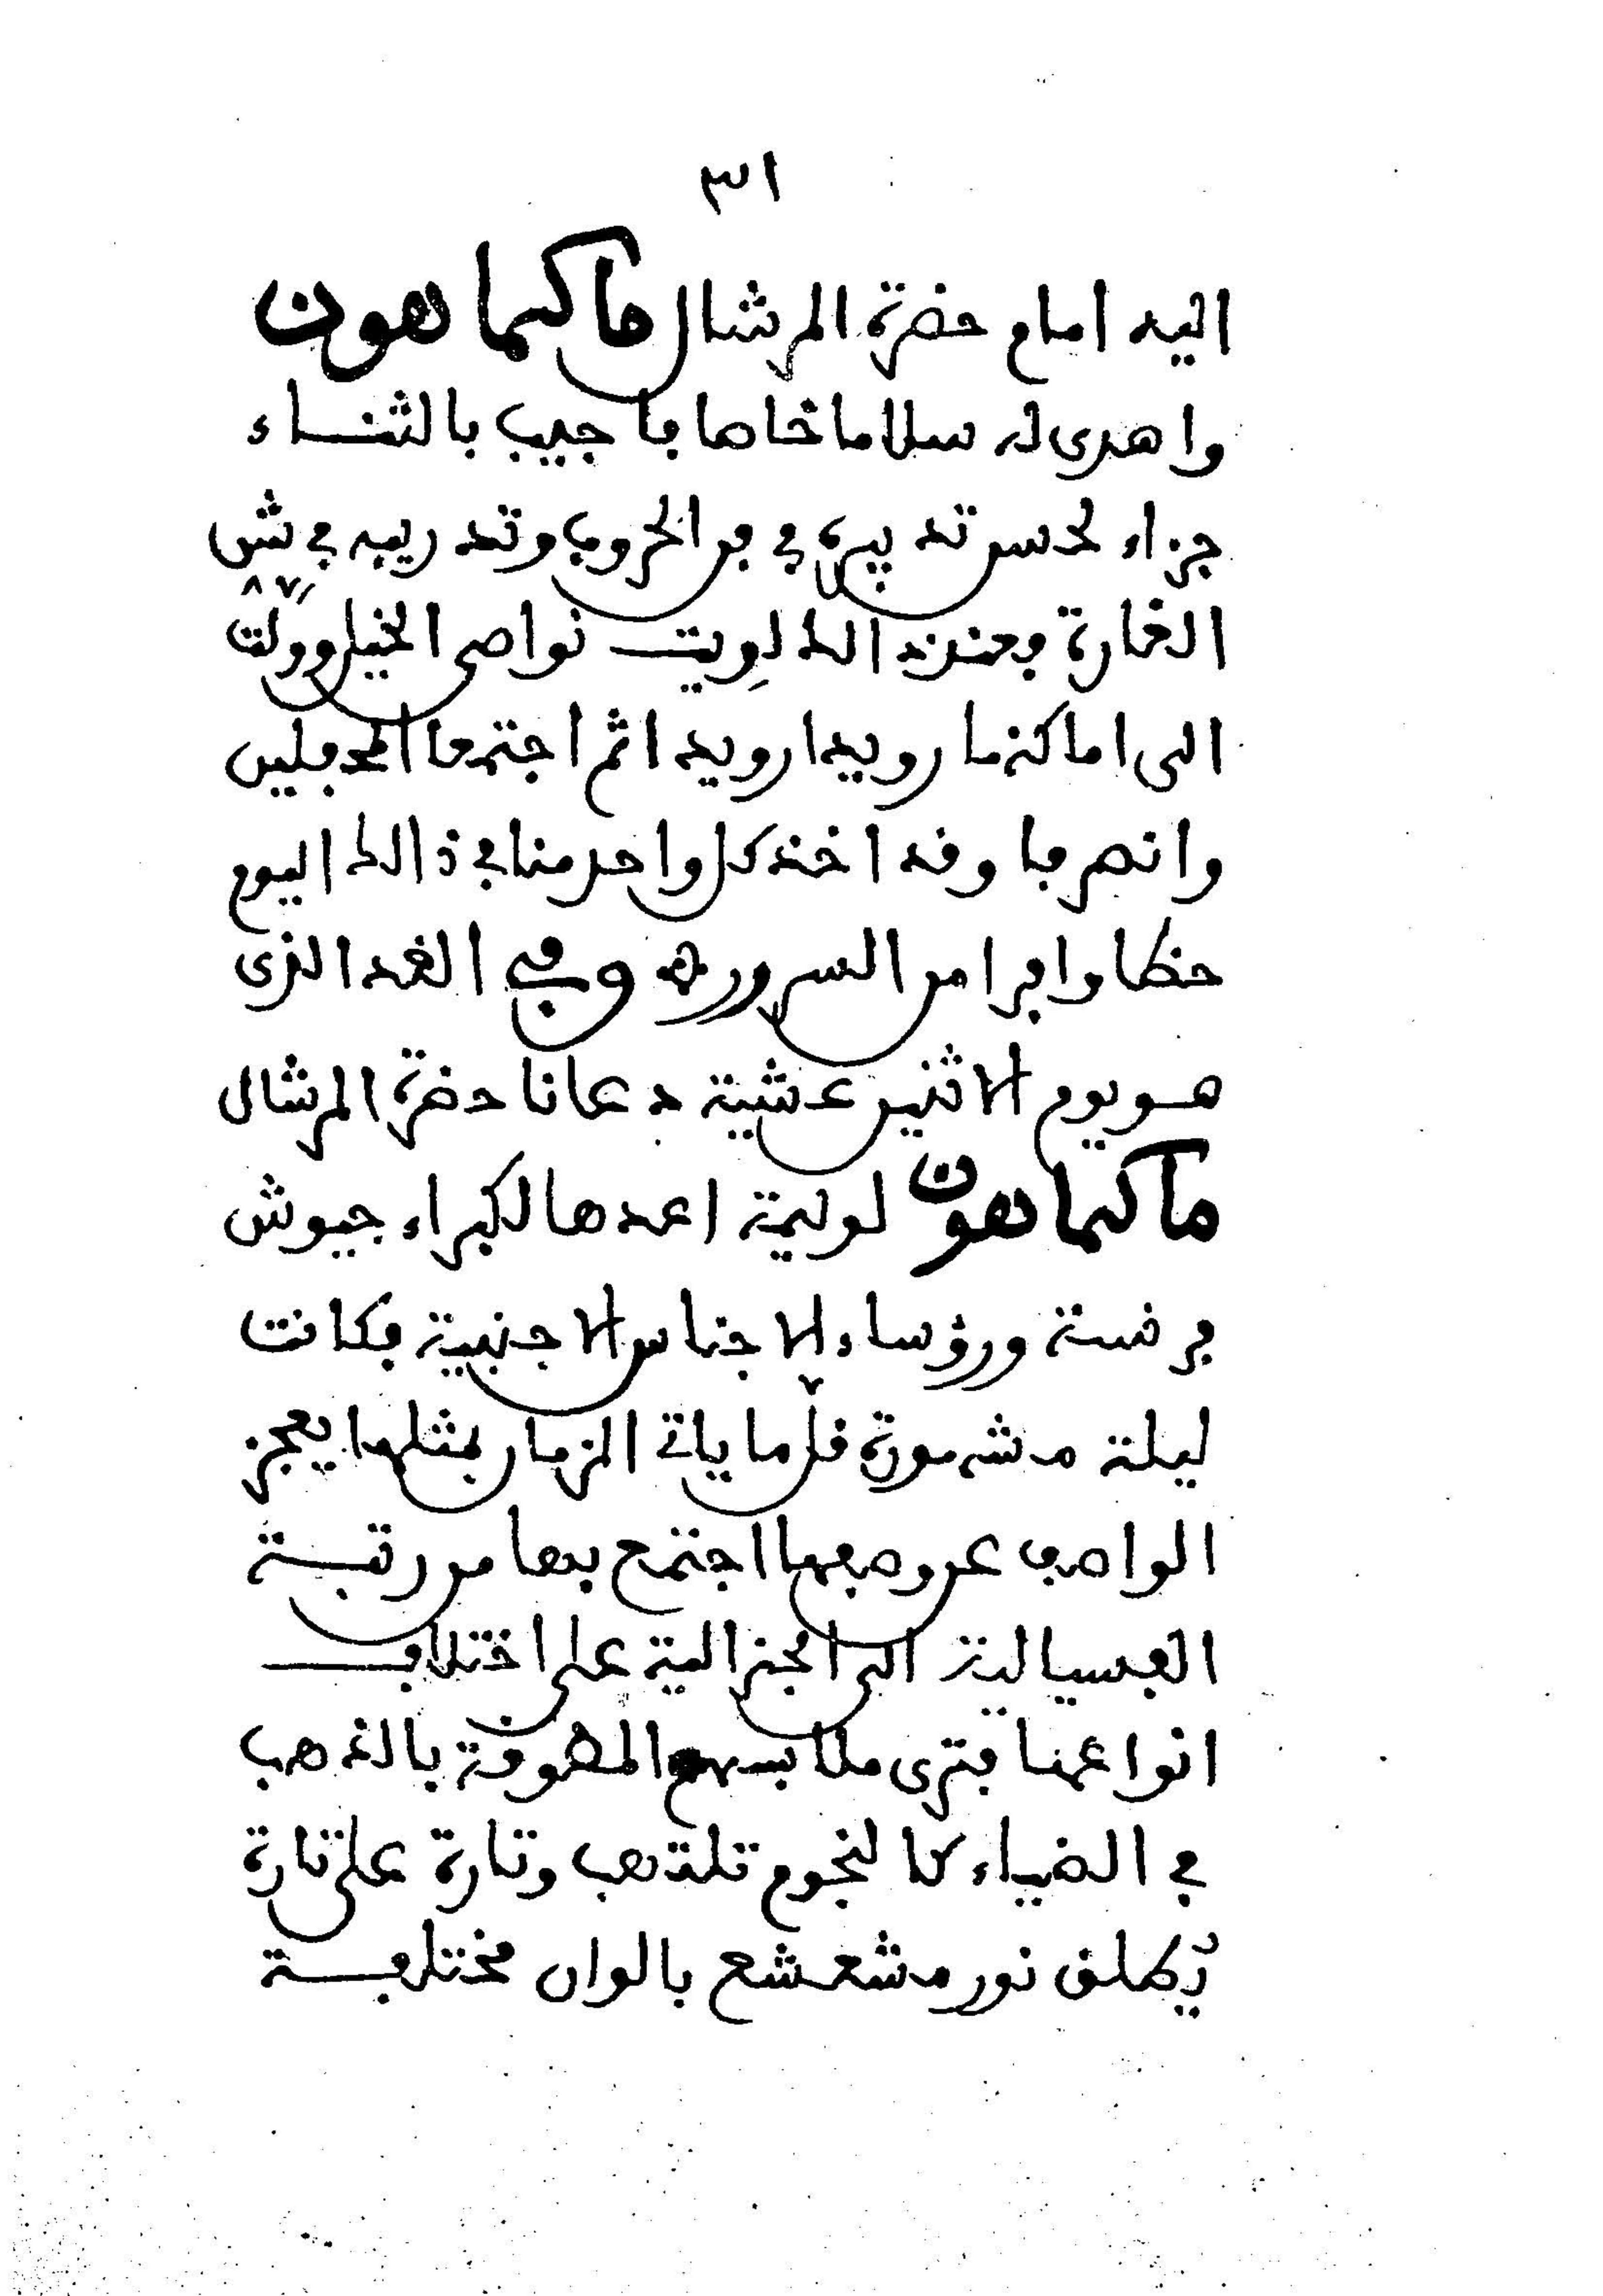 ٣١
اليه امام حضرة المرشال ماكماهون
واهدى له سلاما خاصا فاجيب بالثناء
جزاء لحسن تدبيره في فن الحروب وتدريبه في شن
الغارة فعند ذالك لويت نواصى الخيل وولت
الى اماكنها رويدا رويدا ثم اجتمعا المحفلين
وانصرفا وقد اخذ كل واحد منا في ذالك اليوم
حظا وافرا من السرور ه وفي الغد الذى
هو يوم الاثنين عشية دعانا حضرة المرشال
ماكماهون لوليمة اعدها لكبراء جيوش
فرنسة ورؤساء الاجناس الاجنبية فكانت
ليلة مشهورة قل ما ياتي الزمان بمثلها يعجز
الواصف عن وصفها اجتمع بها من رتبة
الفسيالية الى الجنرالية على اختلاف
انواعها فترى ملابسهم المطوقة بالذهب
في الضياء كالنجوم تلتهب وتارة على تارة
يطلق نور مشعشع بالوان مختلفة